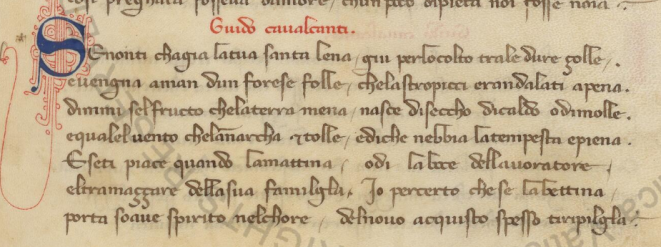 Guido cavalcanti.
SEnonti chagia latua santa lena / giu perlocolto trale dure çolle / .
evengna aman dun forese folle / chelastropicci erandalati apena .
dimmi selfructo chelaterra mena / nasce diseccho dicaldo odimolle .
equalel vento chelannarcha 7tolle / ediche nebbia latempesta epiena .
Eseti piace quando lamattina / odi laboce dellavoratore /
eltramaççare dellasua familglia . Io percerto chese labettina /
porta soave spirito nelchore / delnovo acquisto spesso tiripilglia :